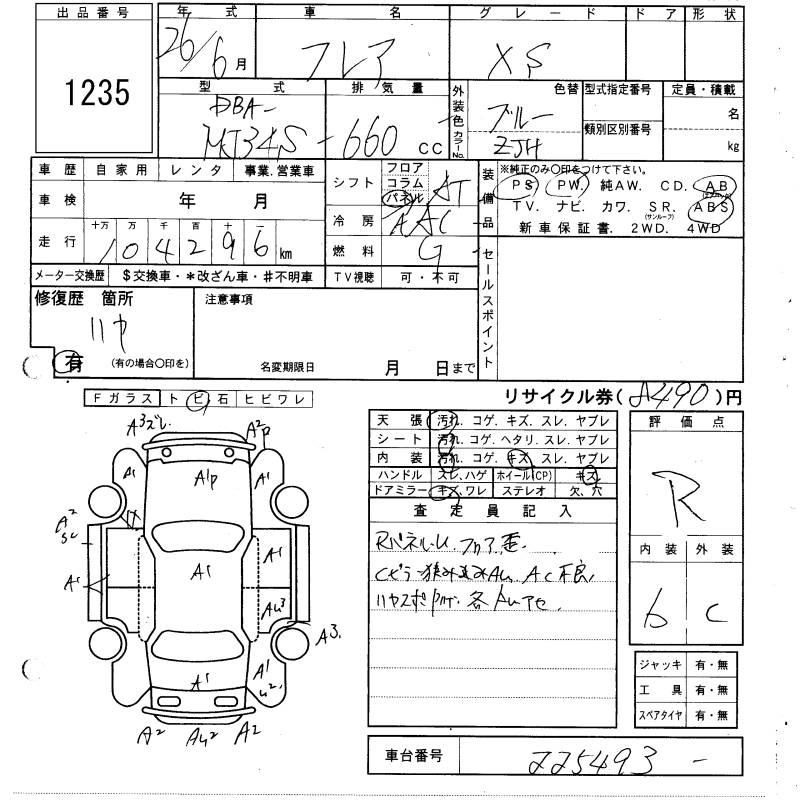 出品番号 年式 車名 グレード ドア 形状
1235 26/6月 フレア XS
型式 排気量 外装色 色替 型式指定番号 定員・積載
DBA- カラーNo. ブルー 名
MJ34S 660cc ZJH 類別区別番号 kg
車歴 自家用 レンタ 事業.営業車 シフト フロア コラム パネル AT 装備品 ※純正のみ○印をつけて下さい。
PS. PW. 純AW. CD. AB
車検 年 月 冷房 AAC TV. ナビ. カワ. SR. ABS
(サンルーフ)
新車保証書. 2WD. 4WD
走行 十万 万 千 百 十 一
104296km 燃料 G セールスポイント
メーター交換歴 $交換車・*改ざん車・#不明車 TV視聴 可・不可
修復歴 箇所 注意事項
リヤ
有 (有の場合○印を) 名変期限日 月 日まで
Fガラス トビ石 ヒビワレ リサイクル券(8490)円
天張 汚れ. コゲ. キズ. スレ. ヤブレ 評価点
シート 汚れ. コゲ. ヘタリ. スレ. ヤブレ
内装 汚れ. コゲ. キズ. スレ. ヤブレ R
ハンドル スレ.ハゲ ホイール(CP) キズ
ドアミラー キズ.ワレ ステレオ 欠.穴
査定員記入
Rパネル.U. フロア歪.
Cピラー挟み込みAU. AC不良.
内装 外装
b C
A3ズレ A2P
A1 A1P A1
A2
A1 A1 A1
AU3
A3.
A1 A1
U2
A2 AU2 A2
ジャッキ 有・無
工具 有・無
スペアタイヤ 有・無
車台番号 225493 -